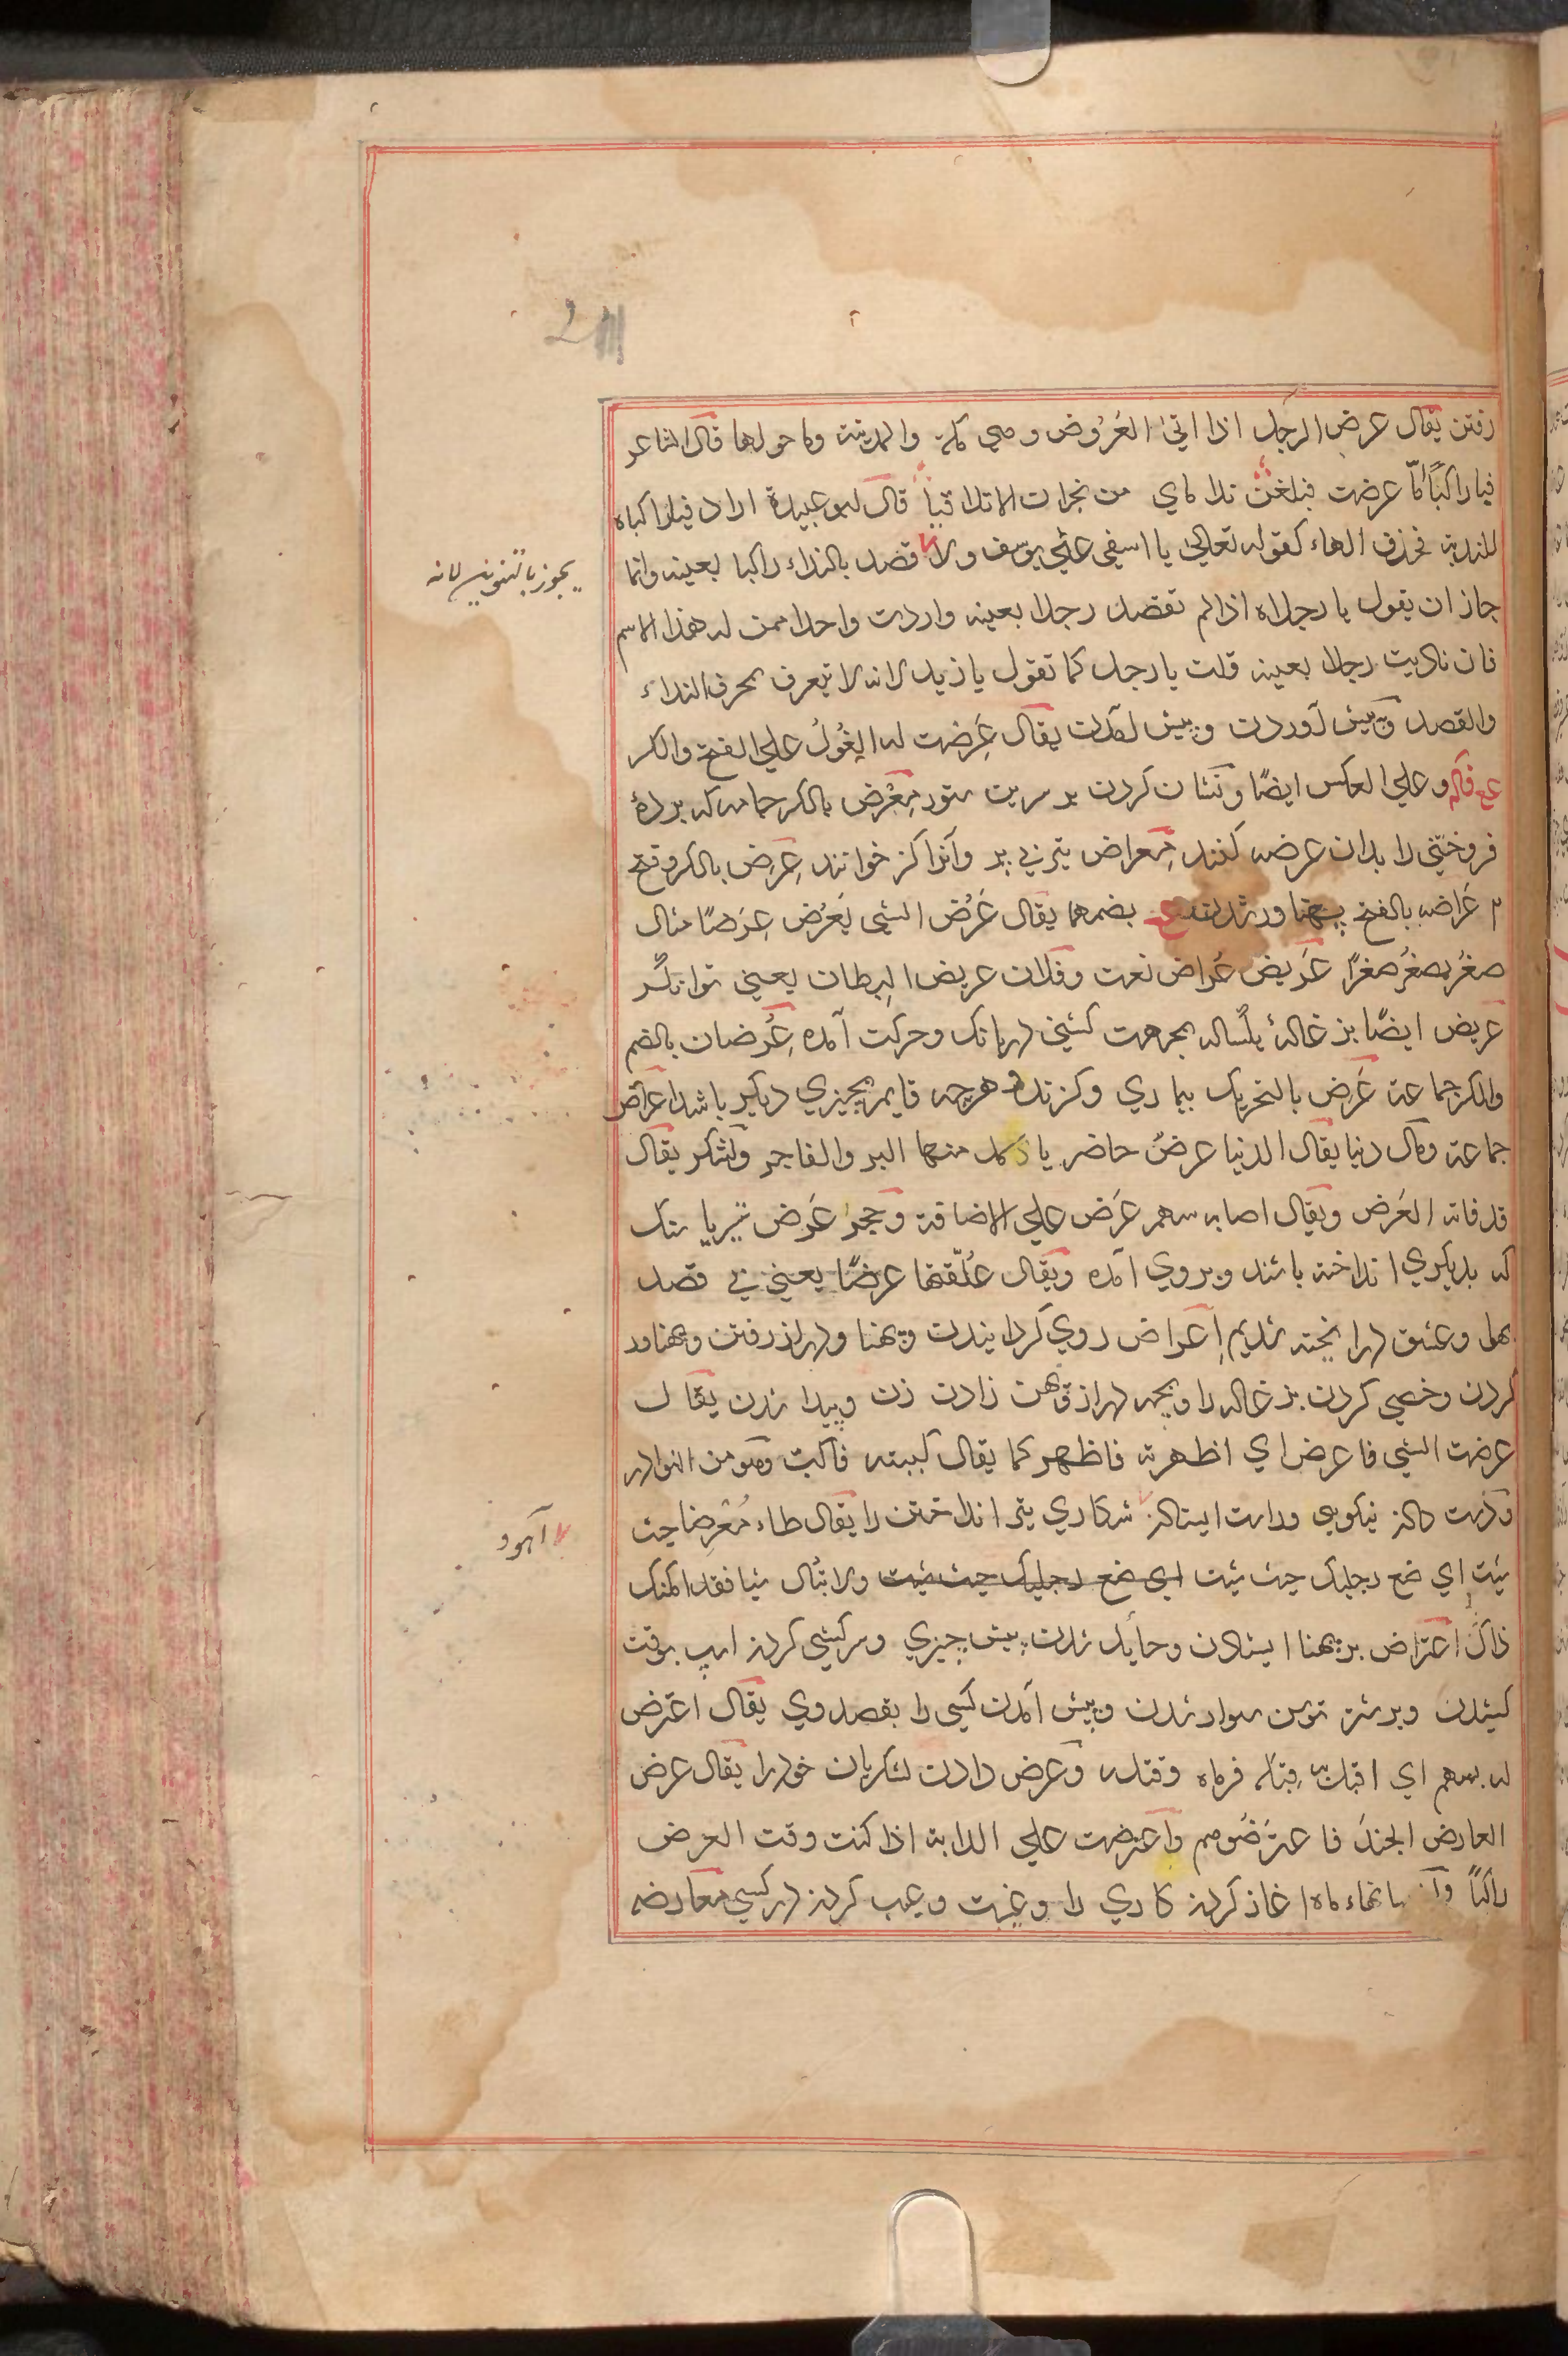 رفتن يقال عرض الرجل اذا اتى العَرُوض وهي مكة والمدينة وما حولها قال الشاعر
فيا راكبًا امّا عرضت فبلغن ندا ماي من نجران الا تلا قيا قال ابو عبيدة اراد فيا راكباه
للندبة فحذف الهاء كقوله تعالى يا اسفى على يوسف ولا قصد بالنداء راكبا بعينه وانما
يجوز بالتنوين لانه
جاز ان يقول يا رجلاه اذا لم تقصد رجلا بعينه واردت واحدا ممن له هذا الاسم
فان ناديت رجلا بعينه قلت يا رجل كما تقول يا زيد لانه لا يتعرف بحرف النداء
والقصد وپيش آوردن وپيش آمدن يقال عَرِضت له الغُولُ على الفتح والكسر
وعلى العكس ايضًا ونشان كردن بر سرين ستور مِعْرَض بالكسر جامه كه برده
فروختنى را بدان عرضه كنند مِعراض تير بى پر وآنرا كز خوانند عِرَض بالكسر وفتح
م عَراضه بالفتح پهناور شدن بضمهما يقال عَرُض الشى يَعْرُض عِرَضًا مثال
صغُر يصغُر صغرًا عَريض عُراض نعت وفلان عريض البطان يعنى توانگر
عريض ايضًا بزغالهٔ يكساله بحرمت كشنى دربانك وحركت آمده عُرضان بالضم
والكسر جماعة عَرَض بالتحريك بيماري وكزند وهرچه قايم بچيزي ديكر باشد اعراض
جماعة ومال دنيا يقال الدنيا عرضٌ حاضر ياكل منها البر والفاجر ولشكر يقال
قد فاته العَرَض ويقال اصابه سهم عَرَض على الاضافة وحجرُ عَرَض تير يا سنك
كه بديكري انداخته باشند وبروي آمده ويقال عُلّقتها عرضًا يعنى بى قصد
بهل وعشق در آنجته شديم اِعراض روي كردانيدن وپهنا ودراز رفتن وپهناور
كردن وخصي كردن بزغاله را وبچه دراز وپهن زادن زن وپيدا شدن يقال
عرضت الشى فاعرض اي اظهرته فاظهر كما يقال كببته فاكبّ وهو من النوادر
شكاري تير انداختن را يقال طاء مُعْرِضا حيث
آهو و
شئت اي ضع رجليك حيث شئت اي ضع رجليك حيث شئت ولا تبال شيا فقد امكنك
ذاك اعتراض بر پهنا ايستادن وحايل شدن پيش چيزي وسركشى كردن اسپ بوقت
كشيدن وبر شتر توسن سوار شدن وپيش آمدن كسى را بقصد وي يقال اعترض
له بسهم اي اقبل به قِبَله فرماه وقتله وعرض دادن لشكريان خود را يقال عرض
العارض الجندَ فاعترَضُوهم واعترضت على الدابة اذا كنت وقت العرض
راكبًا ماه اغاز كردن كاري را وغيبت وعيب كردن در كسى معارضه